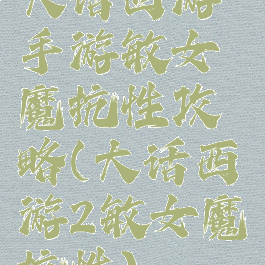 大话西游
手游敏女
魔抗性攻
略(大话西
游2敏女魔
抗性)